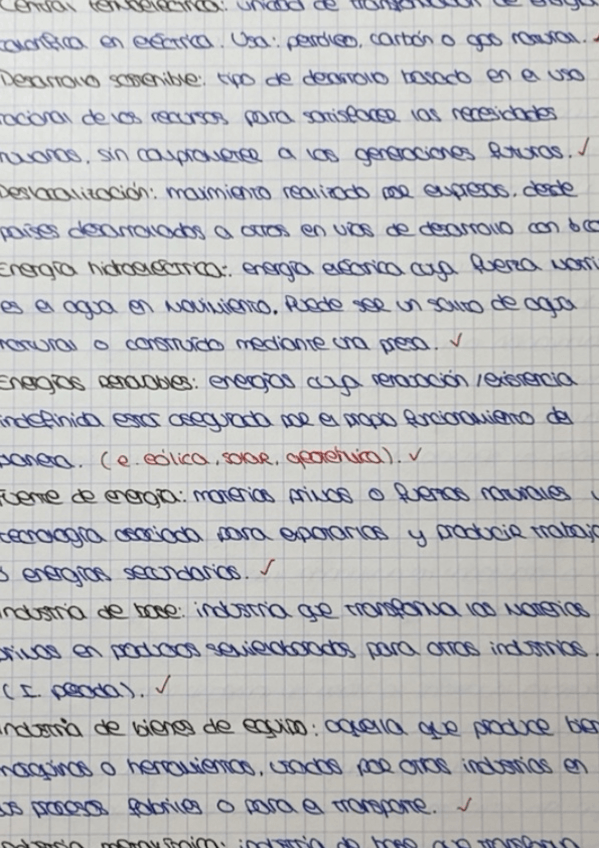 Central termoeléctrica: unidad de transformación de energía
calorífica en eléctrica. Usa: petróleo, carbón o gas natural.
Desarrollo sostenible: tipo de desarrollo basado en el uso
racional de los recursos para satisfacer las necesidades
humanas, sin comprometer a las generaciones futuras. ✓
Deslocalización: movimiento realizado por empresas, desde
países desarrollados a otros en vías de desarrollo con
Energía hidroeléctrica: energía eléctrica cuya fuerza motri
es el agua en movimiento. Puede ser un salto de agua
natural o construido mediante una presa. ✓
Energías renovables: energías cuya renovación/existencia
indefinida está asegurada por el propio funcionamiento del
planeta. (e. eólica, solar, geotérmica). ✓
Fuente de energía: materias primas o fuerzas naturales y
tecnología asociada para explotarlas y producir trabajo
energías secundarias. ✓
Industria de base: industria que transforma las materias
primas en productos semielaborados para otras industrias.
(I. pesada). ✓
Industria de bienes de equipo: aquella que produce bien
maquinas o herramientas, usados por otras industrias en
us procesos fabriles o para el transporte. ✓
industria de base que transforma